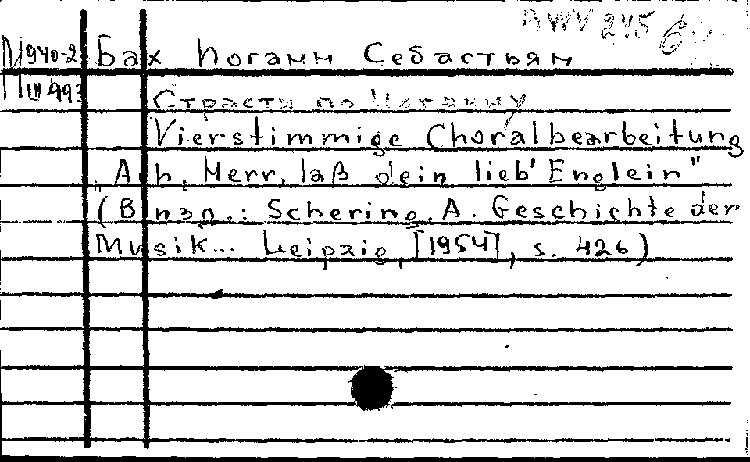 BWV 245
М940-2 Бах Иоганн Себастьян
Страсти по Иоанну
Vierstimmige Choralbearbeitung
„Ach, Herr, laß dein lieb' Englein"
(В изд.: Schering, A. Geschichte der
Musik... Leipzig, [1954], s. 426)